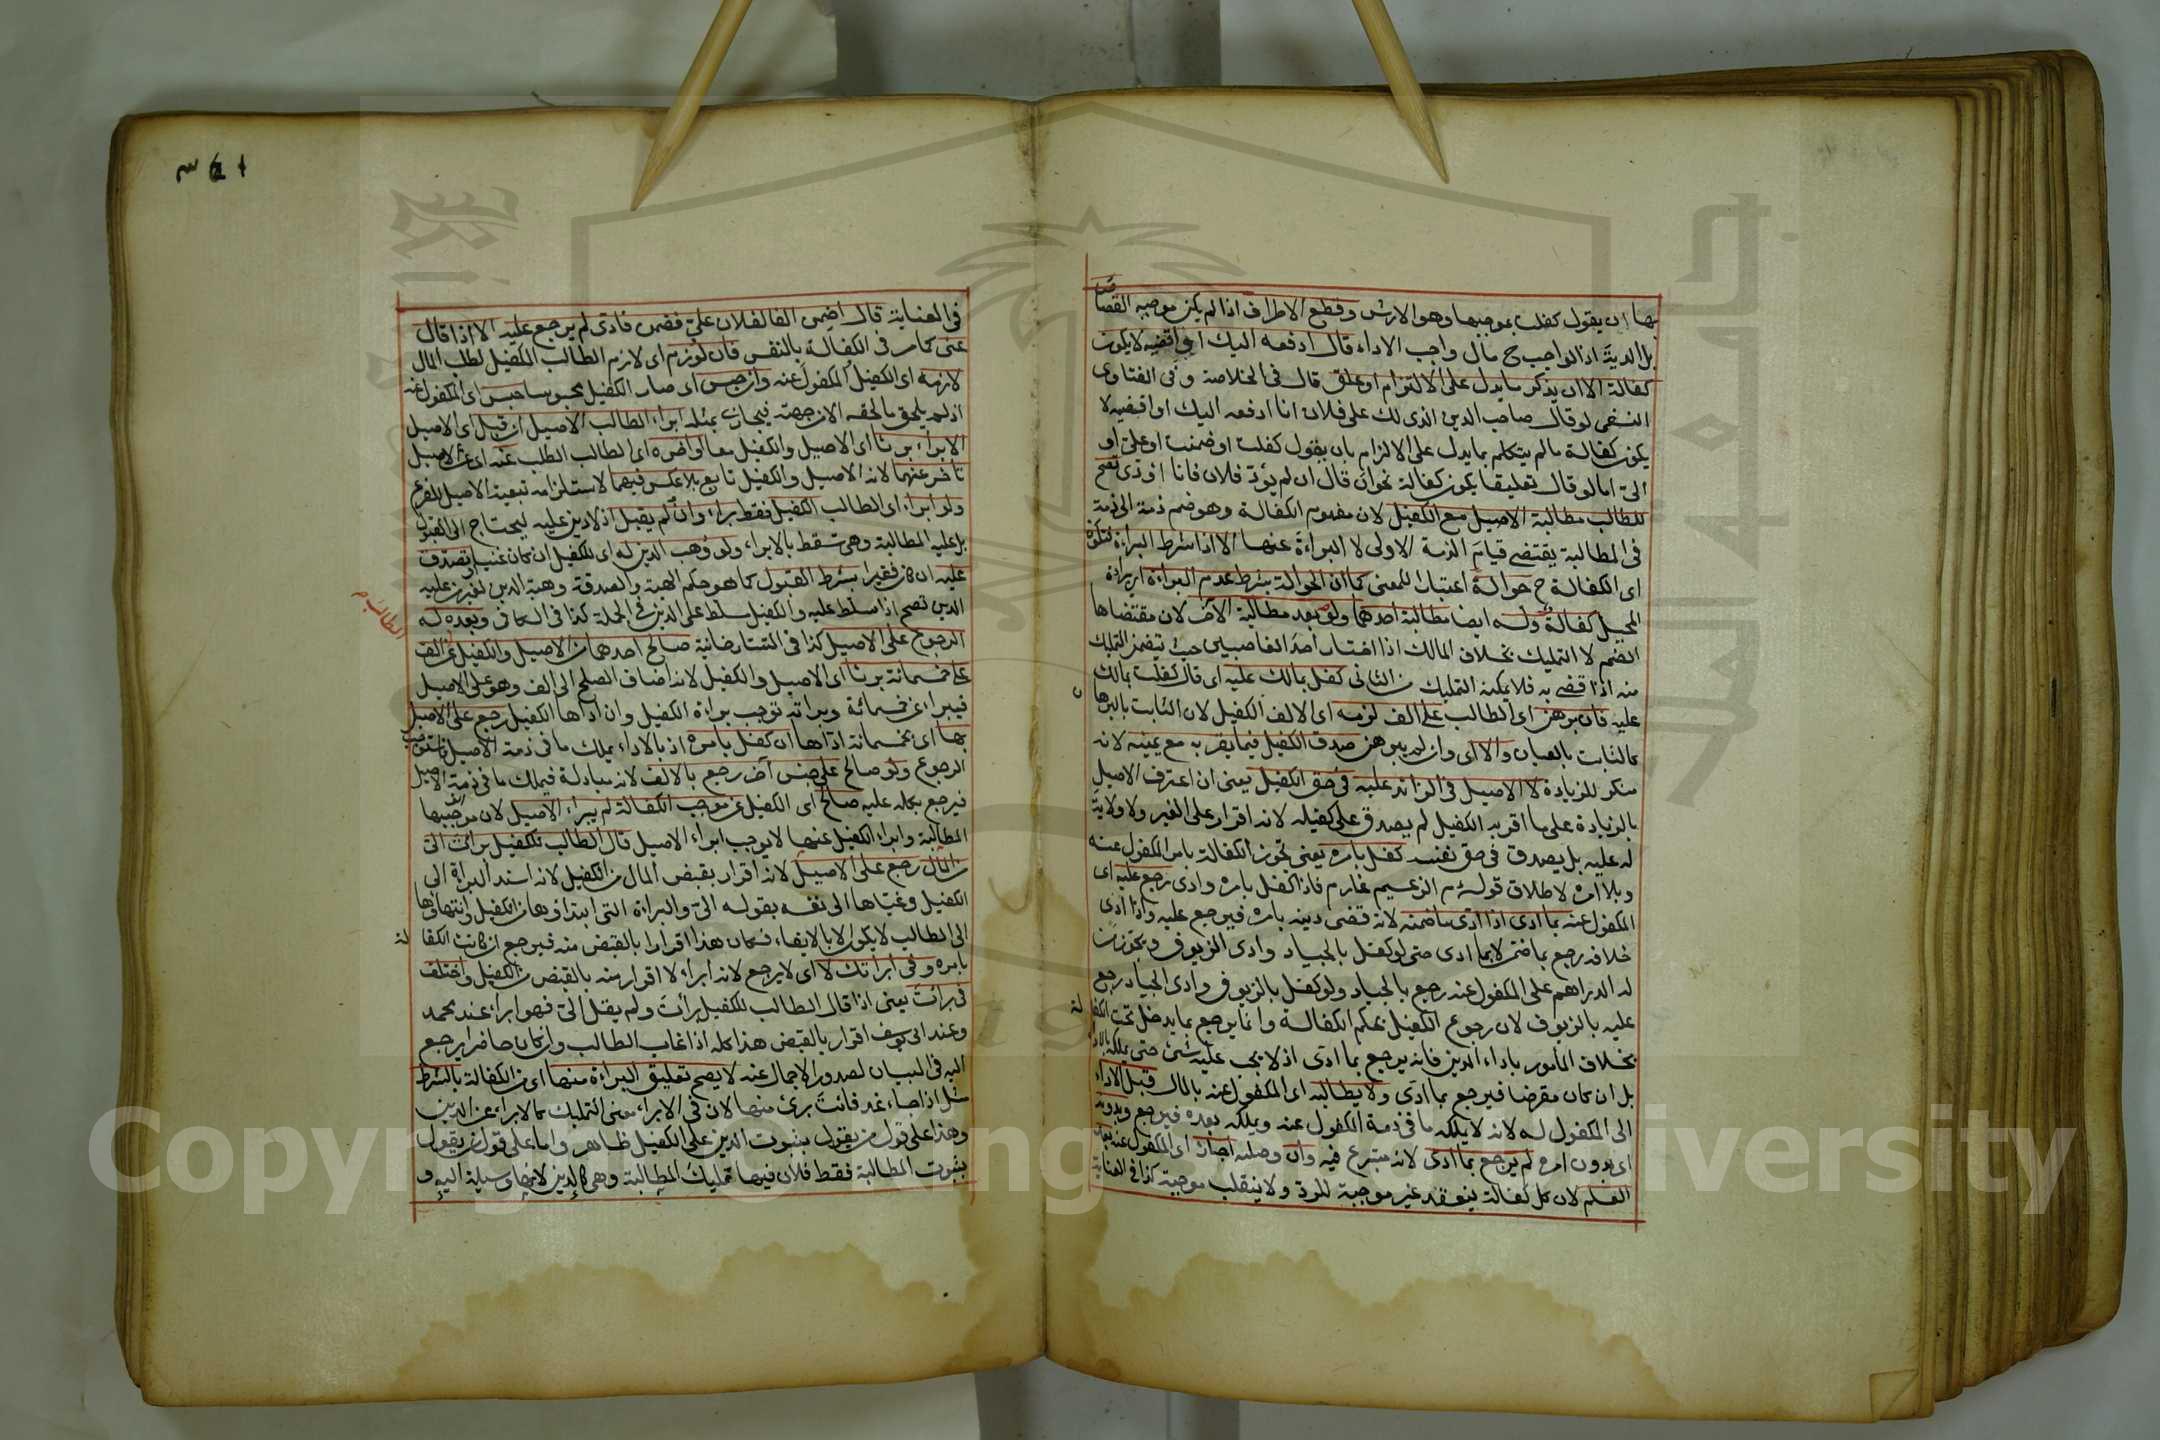 بها ان يقول كفلت بموجبها وهو الارش وقطع الاطراف اذا لم يكن موجبه القصاص
بل الدية اذ الواجب ح مال واجب الاداء قال ادفعه اليك او اقضيه لا يكون
كفالة الا ان يذكر ما يدل على الالتزام او علق قال في الخلاصة وفي الفتاوى
النسفي لو قال صاحب الدين الذى لك على فلان انا ادفعه اليك او اقضيه لا
يكون كفالة ما لم يتكلم بما يدل على الالزام بان يقول كفلت او ضمنت او علي او
الي اما لو قال تعليقا يكون كفالة نحو ان قال ان لم يؤد فلان فانا اؤدى تصح
للطالب مطالبة الاصيل مع الكفيل لان مفهوم الكفالة وهو ضم ذمة الى ذمة
في المطالبة يقتضى قيام الذمة الاولى لا البراءة عنها الا اذا شرط البراءة فتكون
اى الكفالة ح حوالة اعتبارا للمعنى كما ان الحوالة بشرط عدم البراءة اى براءة
المحيل كفالة وله ايضا مطالبة احدهما ولو بعد مطالبة الآخر لان مقتضاها
الضم لا التمليك بخلاف المالك اذا اختار احد الغاصبين حيث يتضمن التمليك
منه اذا قضى به فلا يمكنه التمليك من الثانى كفل بمالك عليه اى قال كفلت بمالك
عليه فان برهن اى الطالب على الف لزمه اى الالف الكفيل لان الثابت بالبرها
كالثابت بالعيان والا اى وان لم يبرهن صدق الكفيل فيما يقر به مع يمينه لانه
منكر للزيادة لا الاصيل في الزائد عليه في حق الكفيل يعنى ان اعترف الاصيل
بالزيادة على ما اقر به الكفيل لم يصدق على كفيله لانه اقرار على الغير ولا ولاية
له عليه بل يصدق في حق نفسه كفل بامره يعنى تجوز الكفالة بامر المكفول عنه
وبلا امره لاطلاق قوله م الزعيم غارم فاذا كفل بامره وادى رجع عليه اى
المكفول عنه بما ادى اذا ادى ما ضمنه لانه قضى دينه بامره فيرجع عليه واذا ادى
خلافه رجع بما ضمن لا بما ادى حتى لو كفل بالجياد وادى الزيوف وتجوز من
له الدراهم على المكفول عنه رجع بالجياد ولو كفل بالزيوف وادى الجياد رجع
عليه بالزيوف لان رجوع الكفيل بحكم الكفالة وانما يرجع بما يدخل تحت الكفا
لة
بخلاف المأمور باداء الدين فانه يرجع بما ادى اذ لا يجب عليه شئ حتى يملكه بالاد
بل ان كان مقرضا فيرجع بما ادى ولا يطالبه اى المكفول عنه بالمال قبل الاداء
الى المكفول له لانه لا يملكه ما في ذمة المكفول عنه ويملكه بعده فيرجع وبدونه
اى بدون امره لم يرجع بما ادى لانه متبرع فيه وان وصلية اجاز اى المكفول عنه بعد
العلم لان كل كفالة ينعقد غير موجبة للرد ولا ينقلب موجبة كذا في العناية
في العناية قال اضمن الفا لفلان علي فضمن فادى لم يرجع عليه الا اذا قال
عنى كما مر في الكفالة بالنفس فان لوزم اى لازم الطالب الكفيل لطلب المال
لازمه اى الكفيل المكفول عنه وان حبس اى صار الكفيل محبوسا حبس اى المكفول عنه
اذ لم يلحق ما لحقه الا من جهته فيجازى بمثله ابراء الطالب الاصيل ان قبل اى الاصيل
الابراء برئا اى الاصيل والكفيل معا او اخره اى الطالب الطلب عنه اى عن الاصيل
تأخر عنهما لانه الاصيل والكفيل تابع بلا عكس فيهما لاستلزامه تبعية الاصيل للفرع
ولو ابراء اى الطالب الكفيل فقط براء وان لم يقبل اذ لا دين عليه ليحتاج الى القبول
بل عليه المطالبة وهي تسقط بالابراء ولو وهب الدين له اى للكفيل ان كان غنيا او تصدق
عليه ان كان فقيرا بشرط القبول كما هو حكم الهبة والصدقة وهبة الدين لغير من عليه
الدين تصح اذا سلط عليه والكفيل سلط على الدين في الجملة كذا في الكافى وبعده له
الطالب م
الرجوع على الاصيل كذا في التتارخانية صالح احدهما من الاصيل والكفيل عن الف
على خمسمائة برئا اى الاصيل والكفيل لانه اضاف الصلح الى الف وهو على الاصيل
فيبراء عن خمسمائة وبراته توجب براءة الكفيل وان اداها الكفيل رجع على الاصيل
بها اى بخمسمائة اداها ان كفل بامره اذ بالاداء يملك ما في ذمة الاصيل فاستوجب
الرجوع ولو صالح على جنس آخر رجع بالالف لانه مبادلة فيملك ما في ذمة الاصيل
فيرجع بكله عليه صالح اى الكفيل عن موجب الكفالة لم يبراء الاصيل لان موجبها
المطالبة وابراء الكفيل عنها لا يوجب ابراء الاصيل قال الطالب للكفيل برأت الي
من المال رجع على الاصيل لانه اقرار بقبض المال من الكفيل لانه اسند البراءة الى
الكفيل وغياها الى نفسه بقوله الي والبراءة التى ابتداؤها من الكفيل وانتهاؤها
الى الطالب لا يكون الا بالايفاء فكان هذا اقرارا بالقبض منه فيرجع ان كانت الكفا
لة
بامره وفي ابرأتك لا اى لا يرجع لانه ابراء لا اقرار منه بالقبض من الكفيل واختلف
في برأت يعنى اذا قال الطالب للكفيل برأت ولم يقل الي فهو ابراء عند محمد
وعند ابى يوسف اقرار بالقبض هذا كله اذا غاب الطالب وان كان حاضرا يرجع
اليه في البيان لصدور الاجمال عنه لا يصح تعليق البراءة منها اى من الكفالة بالشرط
مثل اذا جاء غد فانت برئ منها لان في الابراء معنى التمليك كالابراء عن الدين
وهذا على قول من يقول بثبوت الدين على الكفيل ظاهر واما على قول من يقول
بثبوت المطالبة فقط فلان فيها تمليك المطالبة وهي كالدين لانها وسيلة اليه و
Copyright © King Saud University
جامعة الملك سعود